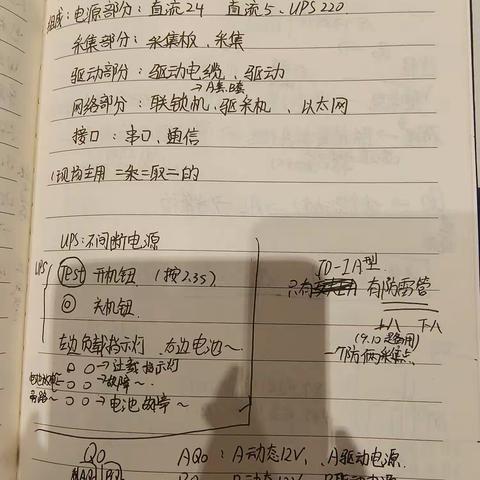 组成:电源部分:直流24 直流5、UPS220
采集部分:采集板、采集
驱动部分:驱动电缆、驱动
→A束、B束
网络部分:联锁机、驱采机、以太网
接口:串口、通信
(现场主用 二乘二取二的
UPS:不间断电源
UPS
Test 开机钮 (按2.3S)
关机钮
左边负载指示灯 右边电池~
→过载指示灯
→故障~
旁路~
→电池故障~
JD-IA型
只有 有防雷管
上八 下八
(9.10是备用)
一个防俩采集点
Q0
AQ0:A动态12V、A驱动电源